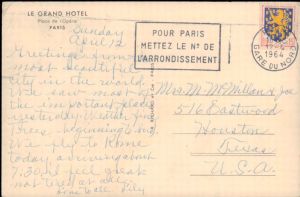 LE GRAND HOTEL
Place de l'Opéra
PARIS
Sunday
April 12
Greetings from the
most beautiful
city in the world
We saw most of
the important places
yesterday. Weather fair
trees beginning to bud
We fly to Rome
today, arriving about
7:30. I feel great
not tired at all.
Love to all, Lily
POUR PARIS
METTEZ LE Nº DE
L'ARRONDISSEMENT
12-4
1964
GARE DU NORD
Mrs. M. McMillan & Joe
516 Eastwood
Houston
Texas
U.S.A.